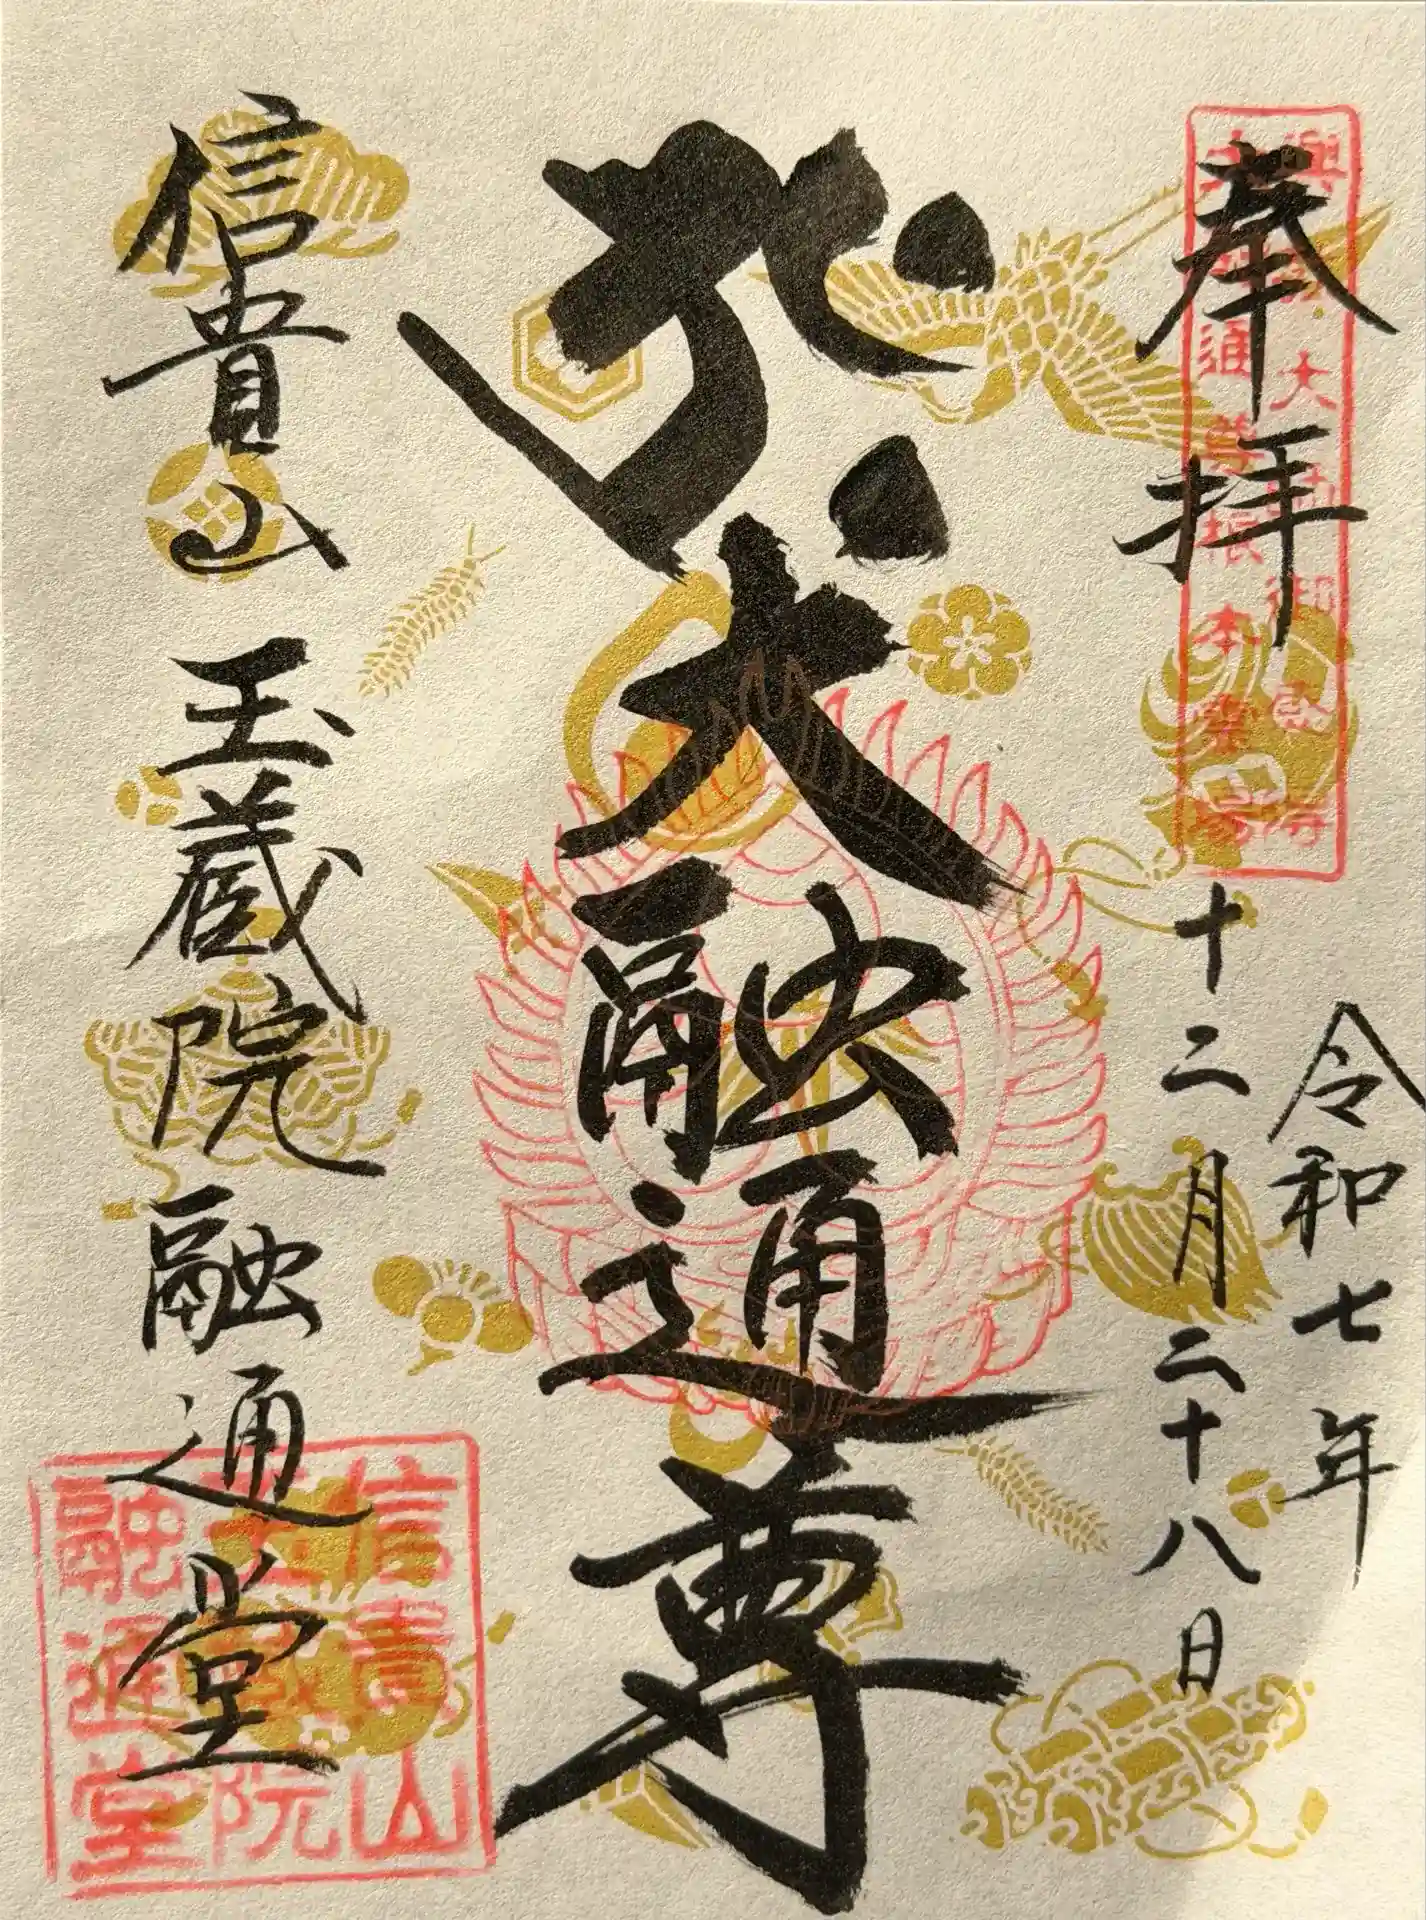 奉拝
令和七年
十二月二十八日
大融通尊
信貴山玉蔵院融通堂
信貴山
玉蔵院
融通堂